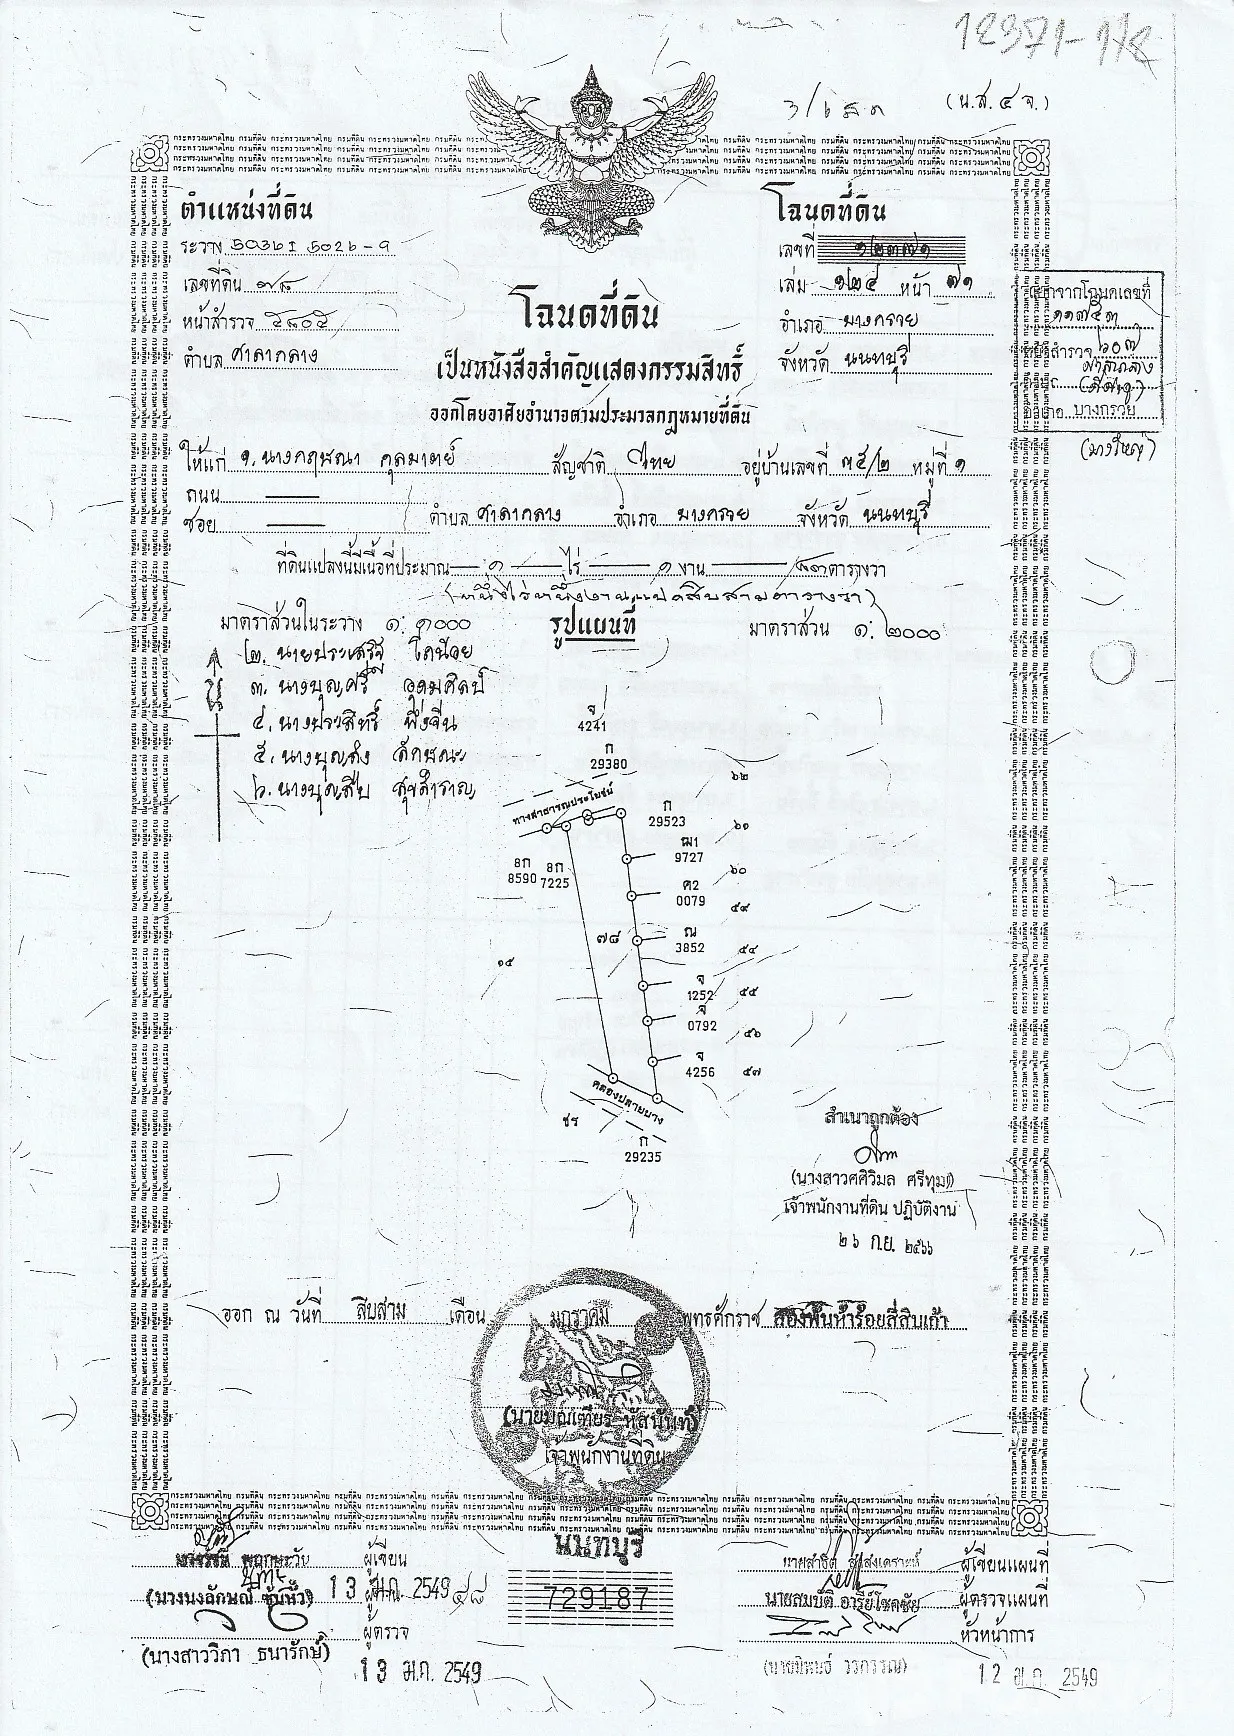 12371-1/2
(น.ส.๔ จ.)
ตำแหน่งที่ดิน
ระวาง 5036 I 5026-9
เลขที่ดิน ๗๘
หน้าสำรวจ ๕๘๐๕
ตำบล ศาลากลาง
โฉนดที่ดิน
เลขที่ ๑๒๓๗๑
เล่ม ๑๒๔ หน้า ๗๑
อำเภอ บางกรวย
จังหวัด นนทบุรี
โฉนดเลขที่
๑๑๓๕๓
สำรวจ ๖๐๗
ศาลากลาง
บางกรวย
(บางใหญ่)
โฉนดที่ดิน
เป็นหนังสือสำคัญแสดงกรรมสิทธิ์
ออกโดยอาศัยอำนาจตามประมวลกฎหมายที่ดิน
ให้แก่ ๑. นางกฤษณา กุลมาตย์ สัญชาติ ไทย อยู่บ้านเลขที่ ๓๕/๒ หมู่ที่ ๑
ถนน
ซอย ตำบล ศาลากลาง อำเภอ บางกรวย จังหวัด นนทบุรี
ที่ดินแปลงนี้มีเนื้อที่ประมาณ ๑ ไร่ ๑ งาน ๘๓ ตารางวา
(หนึ่งไร่หนึ่งงานแปดสิบสามตารางวา)
มาตราส่วนในระวาง ๑: ๑๐๐๐ รูปแผนที่ มาตราส่วน ๑: ๒๐๐๐
๒. นายประเสริฐ โตน้อย
๓. นางบุญศรี อุดมศิลป์
๔. นางประสิทธิ์ พึ่งจีน
๕. นางบุญส่ง ลักษณะ
๖. นางบุญสืบ สุขสำราญ
น
จ
4241
ก
29380
๖๒
ทางสาธารณประโยชน์
ก
29523
๖๑
ฌ1
9727
8ก
8590
8ก
7225
๖๐
ค2
0079
๕๙
๗๘
ณ
3852
๕๔
๑๕
จ
1252
๕๕
จ
0792
๕๖
จ
4256
๕๗
คลองปลายบาง
ชร
ก
29235
สำเนาถูกต้อง
(นางสาวศศิวิมล ศรีทุมมา)
เจ้าพนักงานที่ดิน ปฏิบัติงาน
๒๖ ก.ย. ๒๕๖๖
ออก ณ วันที่ สิบสาม เดือน มกราคม พุทธศักราช สองพันห้าร้อยสี่สิบเก้า
(นายมณเฑียร หัสนันท์)
เจ้าพนักงานที่ดิน
นนทบุรี
729187
พฤกษะวัน ผู้เขียน
(นางนงลักษณ์ ซุ้นหิ้ว) 13 ม.ค. 2549
ผู้ตรวจ
(นางสาววิภา ธนารักษ์)
13 ม.ค. 2549
นายสาธิต สงเคราะห์ ผู้เขียนแผนที่
นายสมบัติ อารีย์โชคชัย ผู้ตรวจแผนที่
หัวหน้าการ
12 ม.ค. 2549